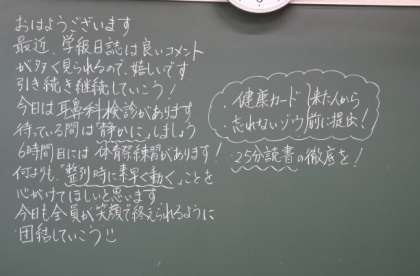 おはようございます
最近、学級日誌は良いコメント
が多く見られるので、嬉しいです
引き続き継続していこう!
今日は耳鼻科検診があります
待っている間は"静かに"しましょう
6時間目には体育祭練習があります!
何よりも、"整列時に素早く動く"ことを
心がけてほしいと思います
今日も全員が笑顔で終えられるように
団結していこう
健康カード 来た人から
忘れないゾウ 前に提出!
・25分読書の徹底を!